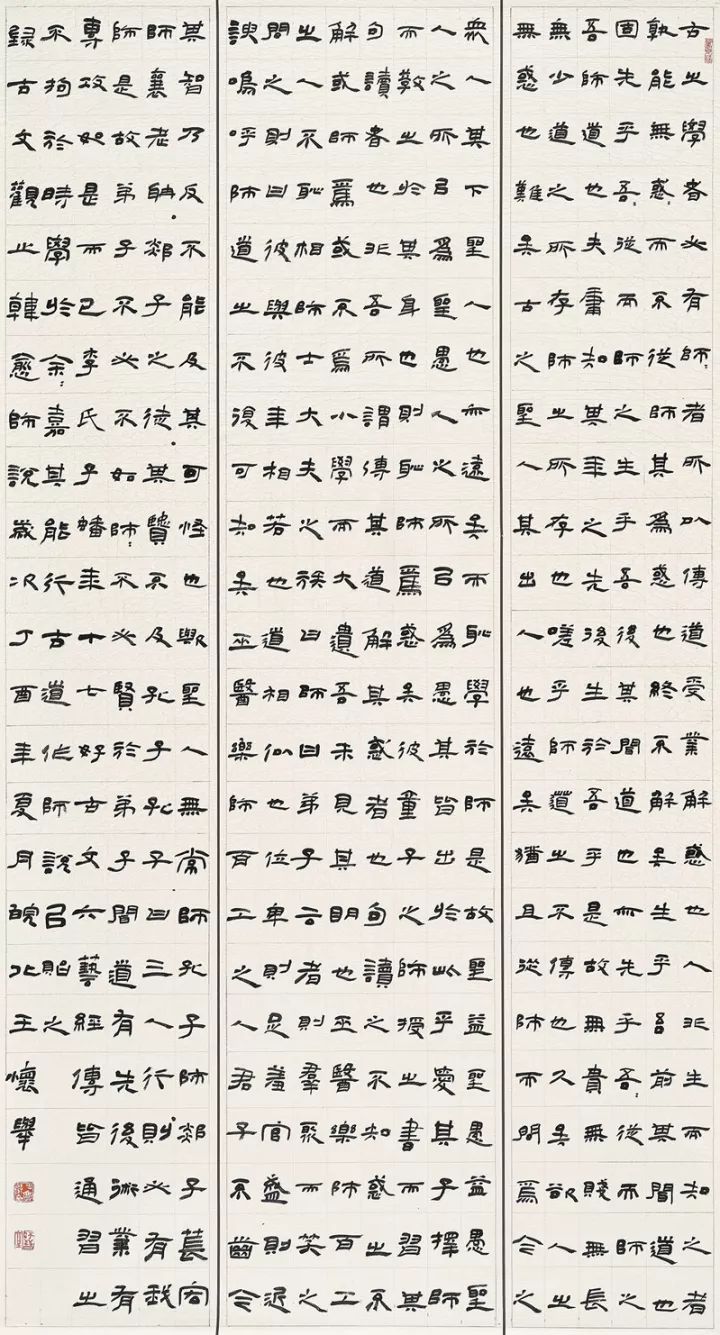 古之學者必有師：者所以傳道受業解惑也人非生而知之者
孰能無惑：而不從師其爲惑也終不解矣生乎吾前其聞道也
固先乎吾：從而師之生乎吾後其聞道也亦先乎吾：從而師之
吾師道也夫庸知其年之先後生於吾乎是故無貴無賤無長
無少道之所存師之所存也嗟乎師道之不傳也久矣欲人之
無惑也難矣古之聖人其出人也遠矣猶且從師而問焉今之
衆人其下聖人也亦遠矣而恥學於師是故聖益聖愚益愚聖
人之所以爲聖愚人之所以爲愚其皆出於此乎愛其子擇師
而教之於其身也則恥師焉惑矣彼童子之師授之書而習其
句讀者也非吾所謂傳其道解其惑者也句讀之不知惑之不
解或師焉或不焉小學而大遺吾未見其明也巫醫樂師百工
之人不恥相師士大夫之族曰師曰弟子云者則羣聚而笑之
問之則曰彼與彼年相若也道相似也位卑則足羞官盛則近
諛嗚呼師道之不復可知矣巫醫樂師百工之人君子不齒今
其智乃反不能及其可怪也歟聖人無常師孔子師郯子萇宏
師襄老聃郯子之徒其賢不及孔子孔子曰三人行則必有我
師是故弟子不必不如師：不必賢於弟子聞道有先後術業有
專攻如是而已李氏子蟠年十七好古文六藝經傳皆通習之
不拘於時學於余：嘉其能行古道作師說以貽之
錄古文觀止韓愈師說歲次丁酉年夏月皖北王懷舉